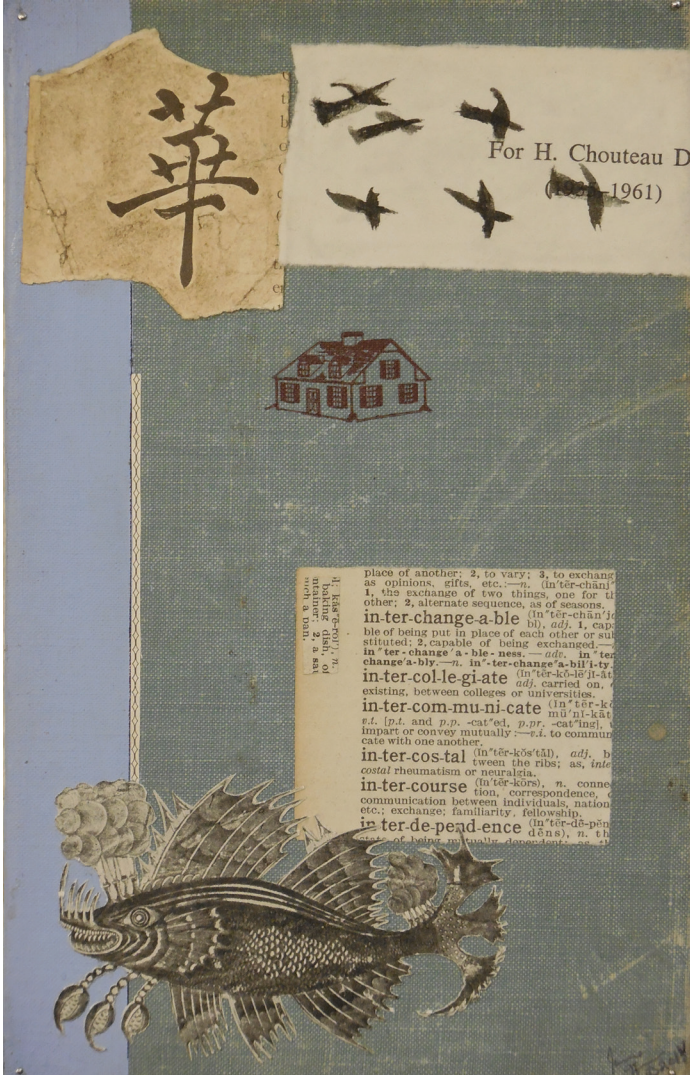 華
For H. Chouteau D
-1961)
place of another; 2, to vary; 3, to exchang
as opinions, gifts, etc.:—n. (in′tẽr-chānj″
1, the exchange of two things, one for th
other; 2, alternate sequence, as of seasons.
in·ter·change·a·ble (in″tẽr-chān′jȧ
bl), adj. 1, cap
ble of being put in place of each other or sub
stituted; 2, capable of being exchanged.—
in″ter·change′a·ble·ness.—adv. in″ter
change′a·bly.—n. in″-ter·change″a·bil′i·ty.
in·ter·col·le·gi·ate (in″tẽr-kŏ-lē′jĭ-āt
adj. carried on,
existing, between colleges or universities.
in·ter·com·mu·ni·cate (in″tẽr-k
mū′nĭ-kāt
v.t. [p.t. and p.p. -cat″ed, p.pr. -cat″ing],
impart or convey mutually:—v.i. to commun
cate with one another.
in·ter·cos·tal (in″tẽr-kŏs′tăl), adj. b
tween the ribs; as, inte
costal rheumatism or neuralgia.
in·ter·course (in′tẽr-kōrs), n. conne
tion, correspondence,
communication between individuals, nation
etc.; exchange; familiarity, fellowship.
in·ter·de·pend·ence (in″tẽr-dē-pĕn
dĕns), n. th
state of being mutually dependent; as th
kăs″ẽ-rōl), n.
baking dish, of
ntainer; 2, a sau
uch a pan.